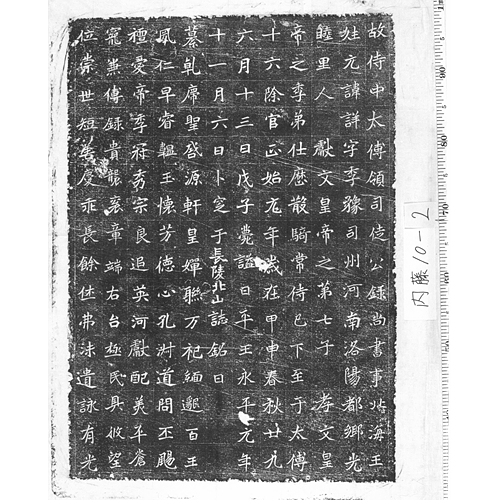 故侍中太傅領司徒公錄尚書事北海王
姓元諱詳字季豫司州河南洛陽都鄉光
睦里人 獻文皇帝之第七子 孝文皇
帝之季弟仕歷散騎常侍已下至于太傅
十六除官正始元年歲在甲申春秋廿九
六月十三日戊子薨謚曰平王永平元年
十一月六日卜窆于長陵北山誌銘曰
纂乾席聖啓源軒皇嬋聯万祀緬邈百王
風仁早睿韞玉懷芳德心孔淑道問丕颺
禋愛帝季冠秀宗良追英河獻配美平蒼
寵兼傅錄貴襲袞章端右台極民具攸望
位崇世短善慶乖長餘休弗沬遺詠有光
内藤10-2